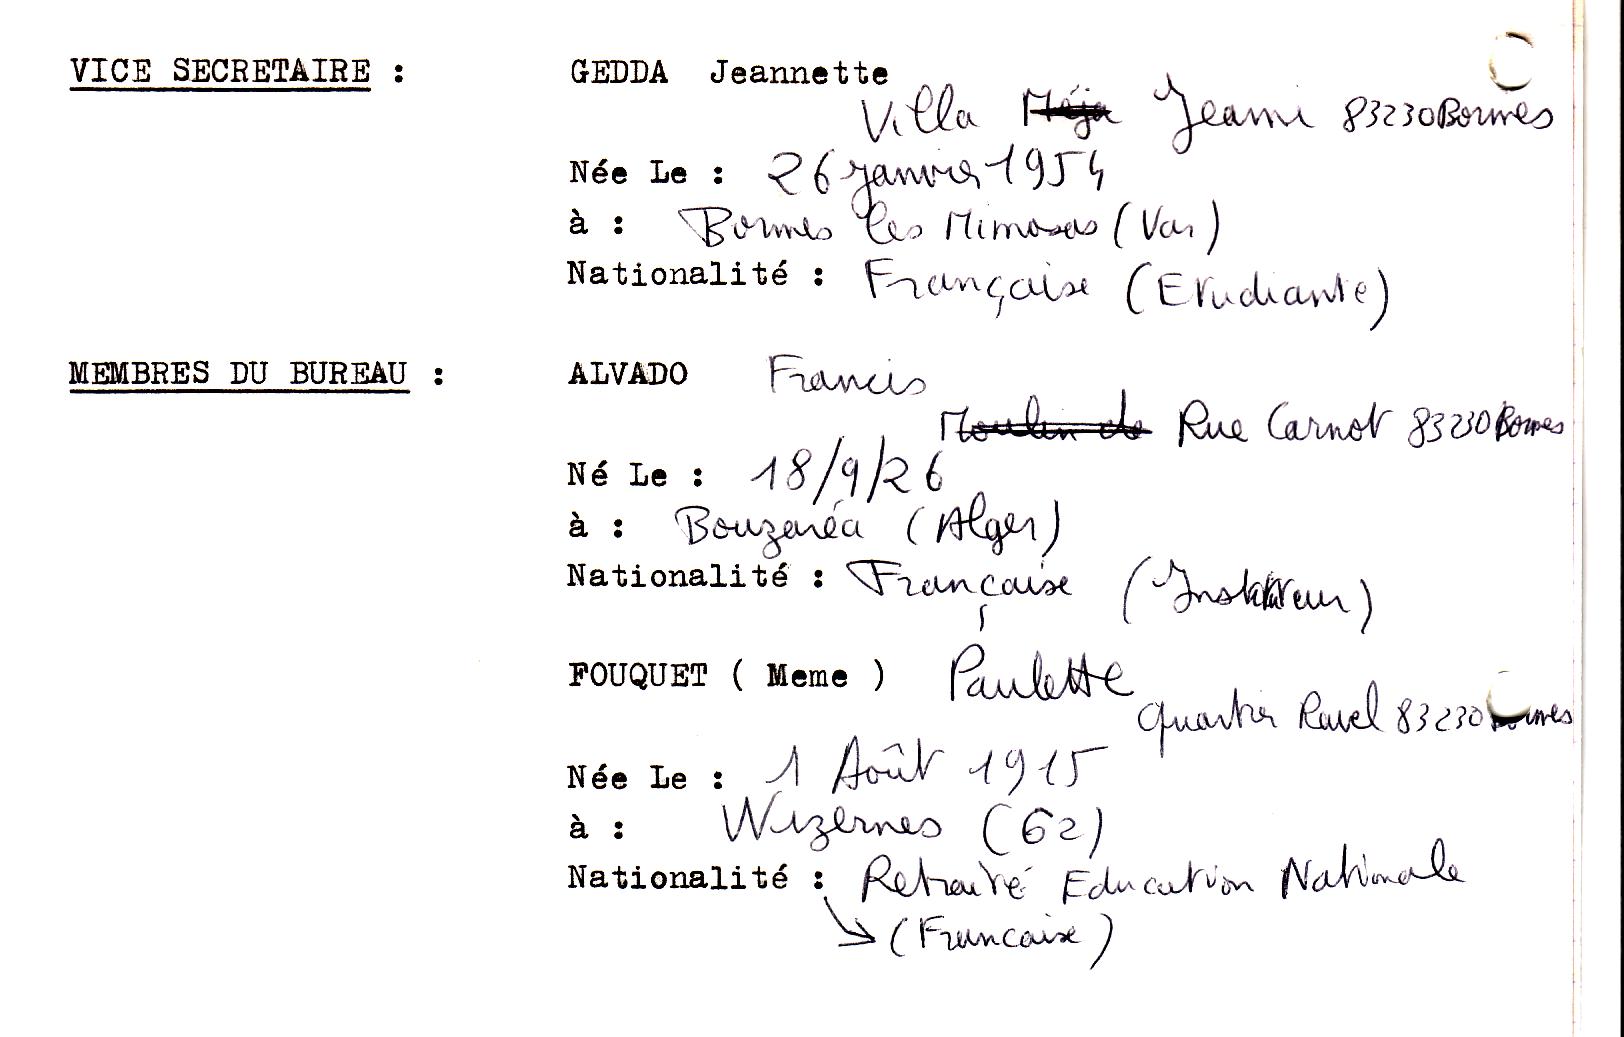 VICE SECRETAIRE : GEDDA Jeannette
Villa Jeami 83230 Bormes
Née Le : 26 janvier 1954
à : Bormes les Mimosas (Var)
Nationalité : Française (Etudiante)
MEMBRES DU BUREAU : ALVADO Francis
Moulin de Rue Carnot 83230 Bormes
Né Le : 18/9/26
à : Bouzaréa (Alger)
Nationalité : Française (Instituteur)
FOUQUET ( Meme ) Paulette
Quartier Ravel 83230 Bormes
Née Le : 1 Août 1915
à : Wizernes (62)
Nationalité : Retraité Education Nationale
(Francaise)